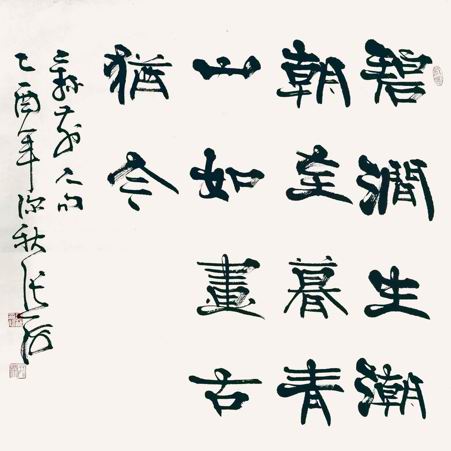 碧澗生潮
朝至暮青
山如畫古
猶今
乙酉年深秋